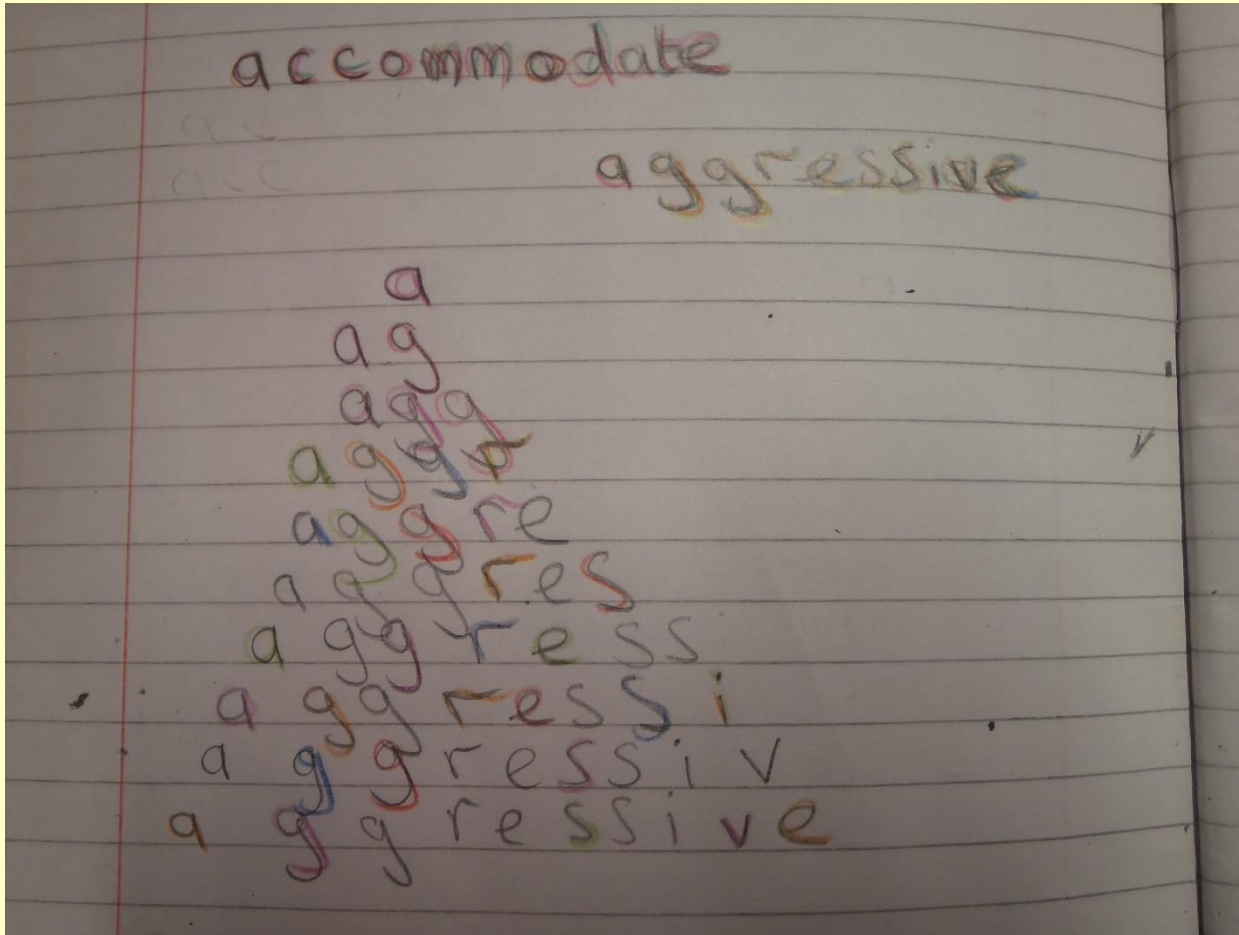 accommodate
ac
acc
aggressive
a
ag
agg
aggr
aggre
aggres
aggress
aggressi
aggressiv
aggressive